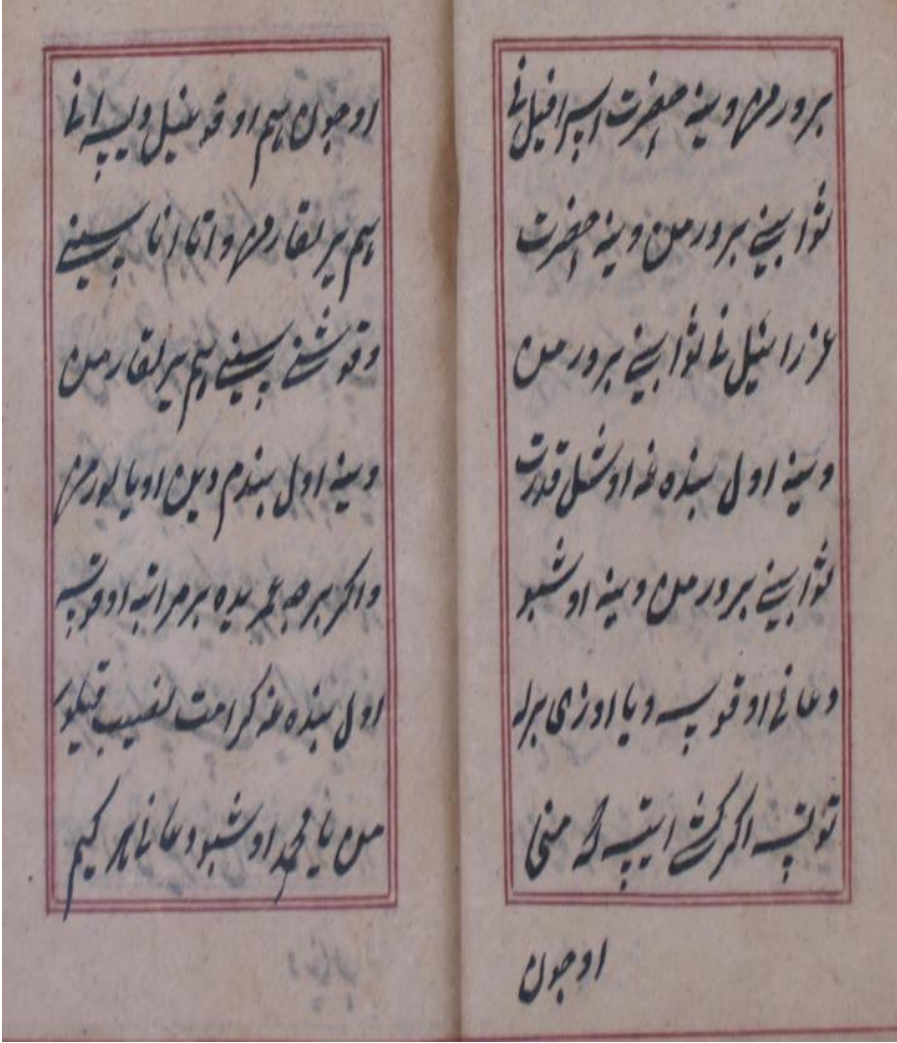 برورمن و ینه حضرت اسرافیل نی
ثوابینی برورمن و ینه حضرت
عزرائیل نی ثوابینی برورمن
و ینه اول بنده غه اوشل قدرت
ثوابینی برورمن و ینه اوشبو
دعانی اوقوب یا اوزی برله
توتسه اکر کشی ایتسه که منی
اوجون
اوجون هم اوقوغیل دیسه انی
هم یرلقارمن و اتا اناسینی
و قوشنیسینی هم یرلقارمن
و ینه اول بندم دین اویالورمن
و اکر هر جمعه ده بر مراتبه اوقوسه
اول بنده غه کرامت نصیب قیلور
من یا محمد اوشبو دعانی هر کیم